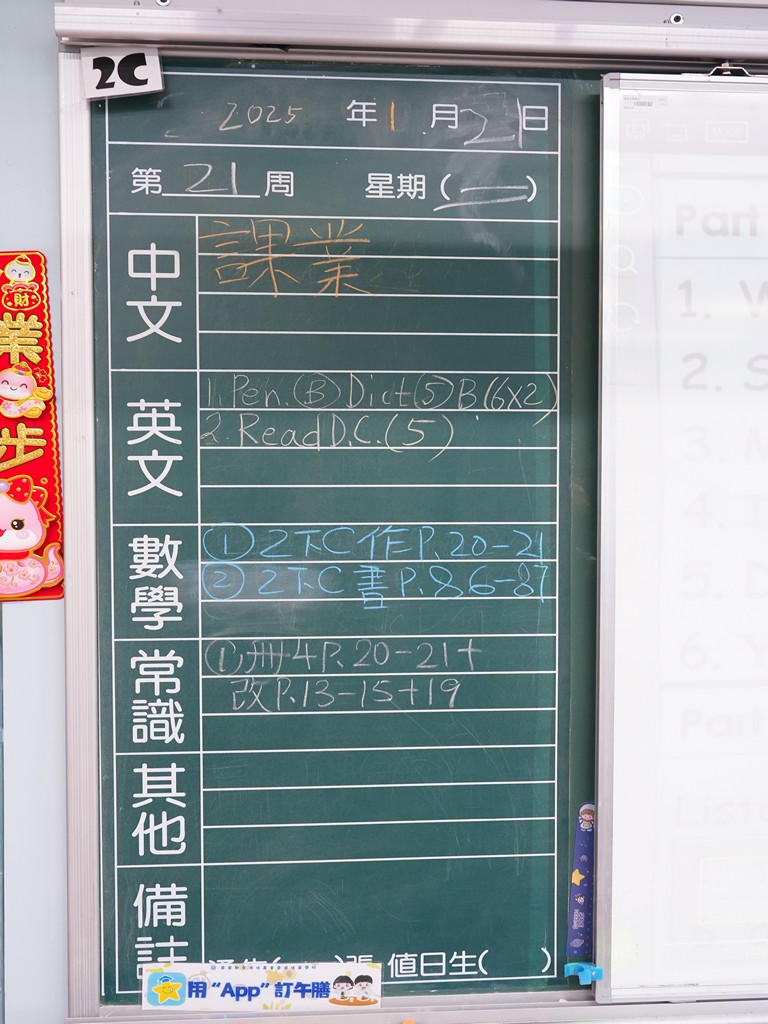 2C
2025 年 1 月 21 日
第 21 周 星期 (二)
中文
課業
英文
1. Pen. (B) Dict (5) B (6x2)
2. Read D.C. (5)
數學
① 2下C 作 P. 20-21
② 2下C 書 P. 86-87
常識
① 冊4 P. 20-21+
改 P. 13-15+19
其他
備註
張 值日生( )
用 "App" 訂午膳
財
業
步
Part
1. W
2. S
3. M
4.
5. D
6. Y
Part